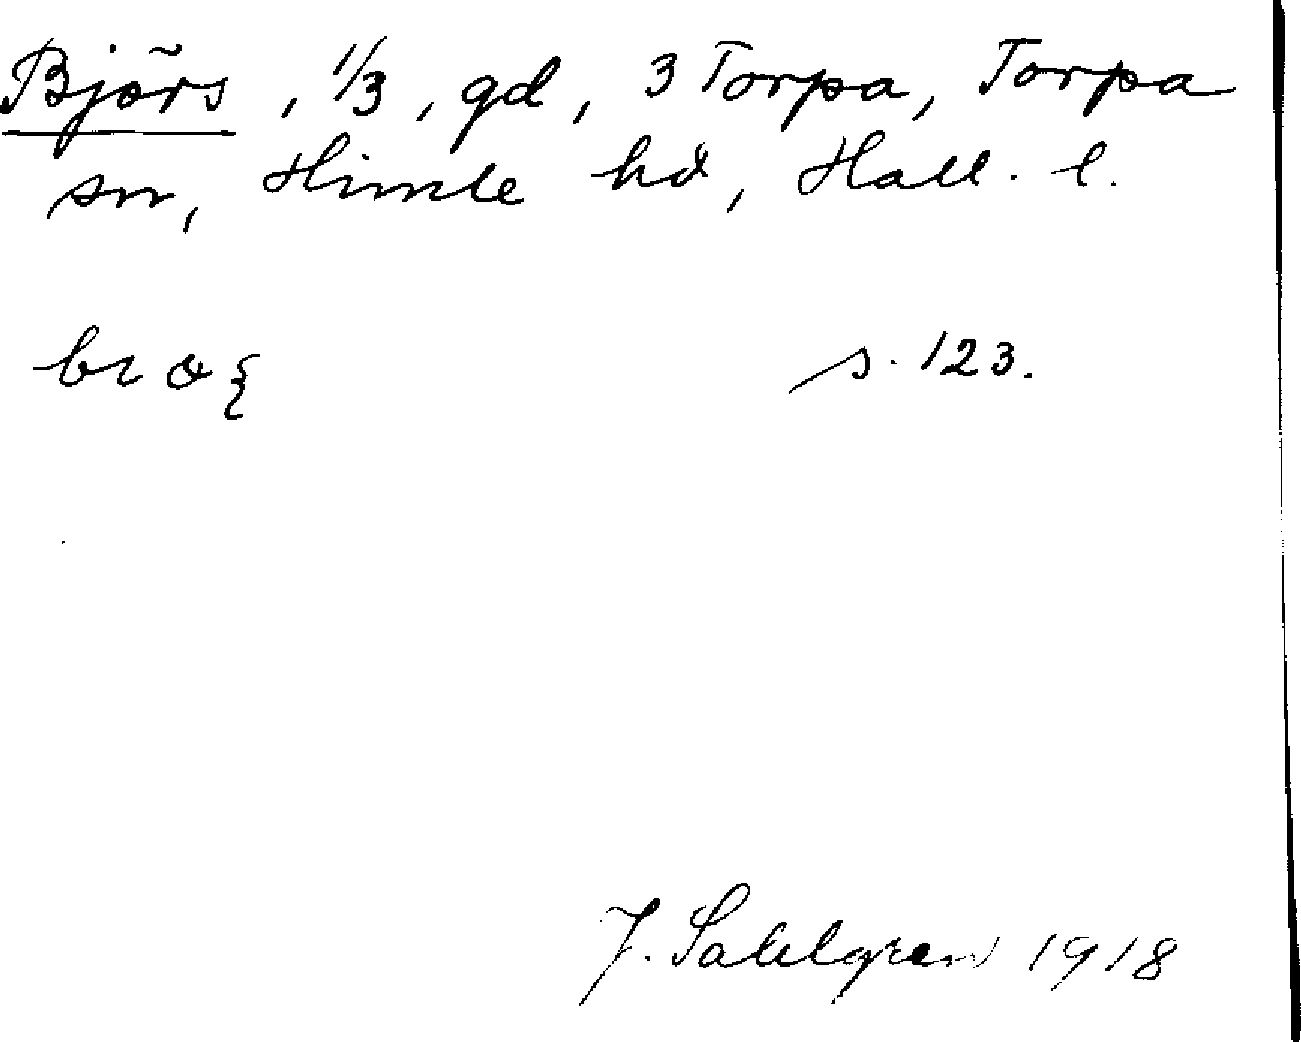 Björs, 1/3, gd, 3 Torpa, Torpa
sn, Himle hd, Hall. l.
s. 123.
J. Sahlgren 1918